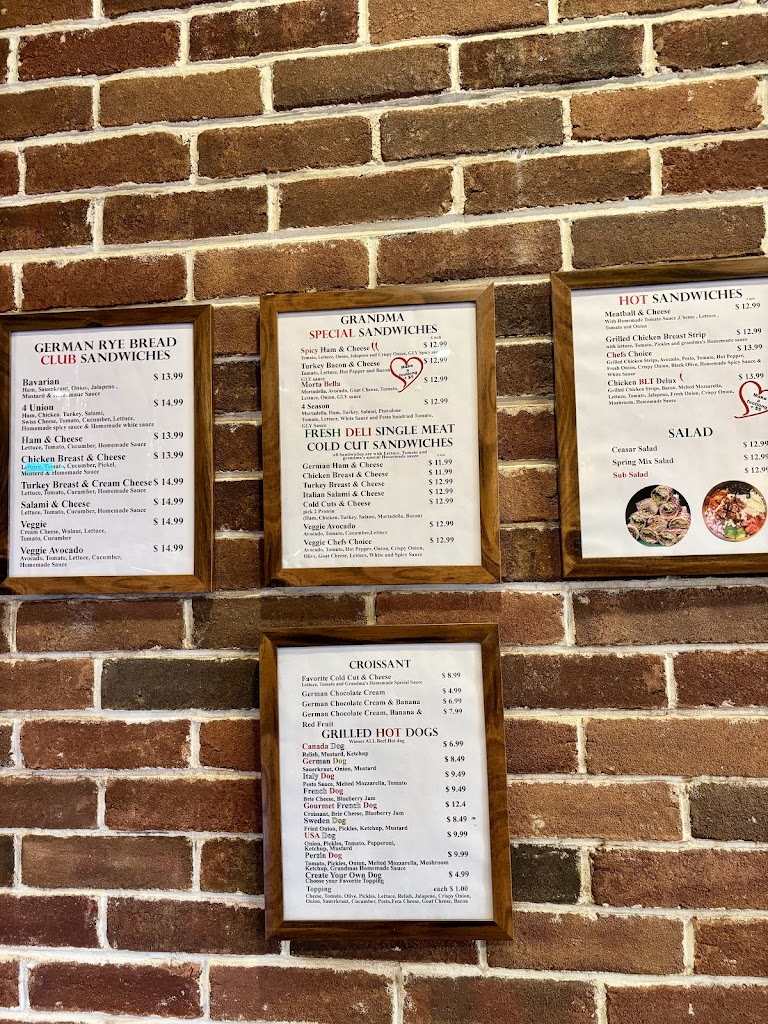 GERMAN RYE BREAD
CLUB SANDWICHES
Bavarian $ 13.99
Ham, Sauerkraut, Onion, Jalapeno ,
Mustard & Homemade Sauce
4 Union $ 14.99
Ham, Chicken, Turkey, Salami,
Swiss Cheese, Tomato, Cucumber, Lettuce,
Homemade spicy sauce & Homemade white sauce
Ham & Cheese $ 13.99
Lettuce, Tomato, Cucumber, Homemade Sauce
Chicken Breast & Cheese $ 13.99
Lettuce, Tomato, Cucumber, Pickel,
Mustard & Homemade Sauce
Turkey Breast & Cream Cheese $ 14.99
Lettuce, Tomato, Cucumber, Homemade Sauce
Salami & Cheese $ 14.99
Lettuce, Tomato, Cucumber, Homemade Sauce
Veggie $ 14.99
Cream Cheese, Walnut, Lettuce,
Tomato, Cucumber
Veggie Avocado $ 14.99
Avocado, Tomato, Lettuce, Cucumber,
Homemade Sauce
GRANDMA
SPECIAL SANDWICHES
Spicy Ham & Cheese $ 12.99
Tomato, Lettuce, Onion, Jalapeno and Crispy Onion, GLY Spicy sauce
Turkey Bacon & Cheese $ 12.99
Tomato, Lettuce, Hot Pepper and Bacon
GLY sauce
Morta Bella $ 12.99
Mortadella, Avocado, Goat Cheese, Tomato,
Lettuce, Onion, GLY sauce
4 Season $ 12.99
Mortadella, Ham, Turkey, Salami, Provolone
Tomato, Lettuce, White Sauce and Pesto Sandried Tomato,
GLY Sauce
FRESH DELI SINGLE MEAT
COLD CUT SANDWICHES
all Sandwiches are with Lettuce, Tomato and
grandma's special Homemade sauce
German Ham & Cheese $ 11.99
Chicken Breast & Cheese $ 11.99
Turkey Breast & Cheese $ 12.99
Italian Salami & Cheese $ 12.99
Cold Cuts & Cheese $ 12.99
pick 2 Protein
(Ham, Chicken, Turkey, Salami, Mortadella, Bacon)
Veggie Avocado $ 12.99
Avocado, Tomato, Cucumber,Lettuce
Veggie Chefs Choice $ 12.99
Avocado, Tomato, Hot Pepper, Onion, Crispy Onion,
Olive, Goat Cheese, Lettuce, White and Spicy Sauce
HOT SANDWICHES
Meatball & Cheese $ 12.99
With Homemade Tomato Sauce ,Cheese , Lettuce ,
Tomato and Onion
Grilled Chicken Breast Strip $ 12.99
with lettuce, Tomato, Pickles and grandma's Homemade sauce
Chefs Choice $ 13.99
Grilled Chicken Strips, Avocado, Pesto, Tomato, Hot Pepper,
Fresh Onion, Crispy Onion, Black Olive, Homemade Spicy Sauce &
White Sauce
Chicken BLT Delux $ 13.99
Grilled Chicken Strips, Bacon, Melted Mozzarella,
Lettuce, Tomato, Jalapeno, Fresh Onion, Crispy Onion,
Mushroom, Homemade Sauce
SALAD
Ceasar Salad $ 12.99
Spring Mix Salad $ 12.99
Sub Salad $ 12.99
CROISSANT
Favorite Cold Cut & Cheese $ 8.99
Lettuce, Tomato and Grandma's Homemade Special Sauce
German Chocolate Cream $ 4.99
German Chocolate Cream & Banana $ 6.99
German Chocolate Cream, Banana & $ 7.99
Red Fruit
GRILLED HOT DOGS
Wiener ALL Beef Hot dog
Canada Dog $ 6.99
Relish, Mustard, Ketchup
German Dog $ 8.49
Sauerkraut, Onion, Mustard
Italy Dog $ 9.49
Pesto Sauce, Melted Mozzarella, Tomato
French Dog $ 9.49
Brie Cheese, Blueberry Jam
Gourmet French Dog $ 12.4
Croissant, Brie Cheese, Blueberry Jam
Sweden Dog $ 8.49
Fried Onion, Pickles, Ketchup, Mustard
USA Dog $ 9.99
Onion, Pickles, Tomato, Pepperoni,
Ketchup, Mustard
Perzin Dog $ 9.99
Tomato, Pickles, Onion, Melted Mozzarella, Mushroom
Ketchup, Grandmas Homemade Sauce
Create Your Own Dog $ 4.99
Choose your Favorite Topping
Topping each $ 1.00
Cheese, Tomato, Olive, Pickles, Lettuce, Relish, Jalapeno, Crispy Onion,
Onion, Sauerkraut, Cucumber, Pesto,Feta Cheese, Goat Cheese, Bacon